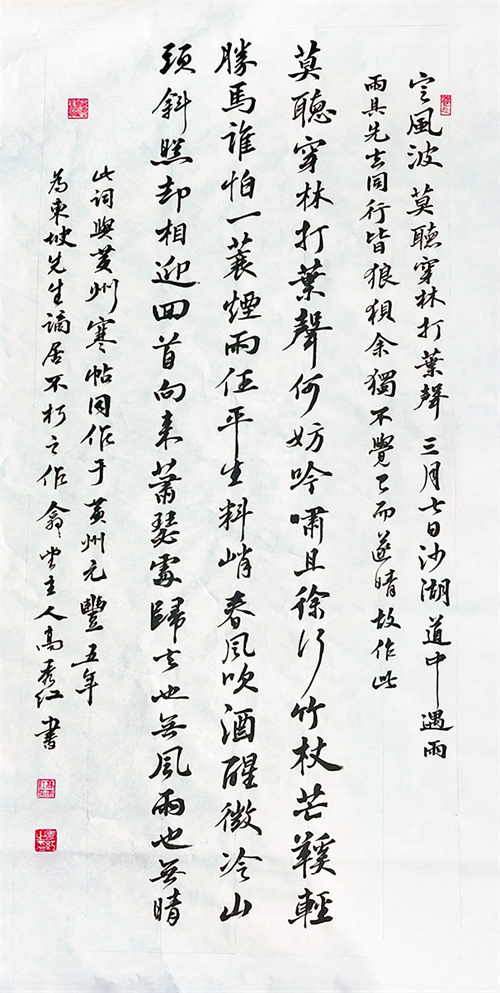 定風波 莫聽穿林打葉聲 三月七日沙湖道中遇雨
雨具先去同行皆狼狽余獨不覺已而遂晴故作此
莫聽穿林打葉聲何妨吟嘯且徐行竹杖芒鞋輕
勝馬誰怕一蓑煙雨任平生料峭春風吹酒醒微冷山
頭斜照却相迎回首向來蕭瑟處歸去也無風雨也無晴
此詞與黄州寒帖同作于黄州元豐五年
為東坡先生謫居不朽之作 主人高秀红書